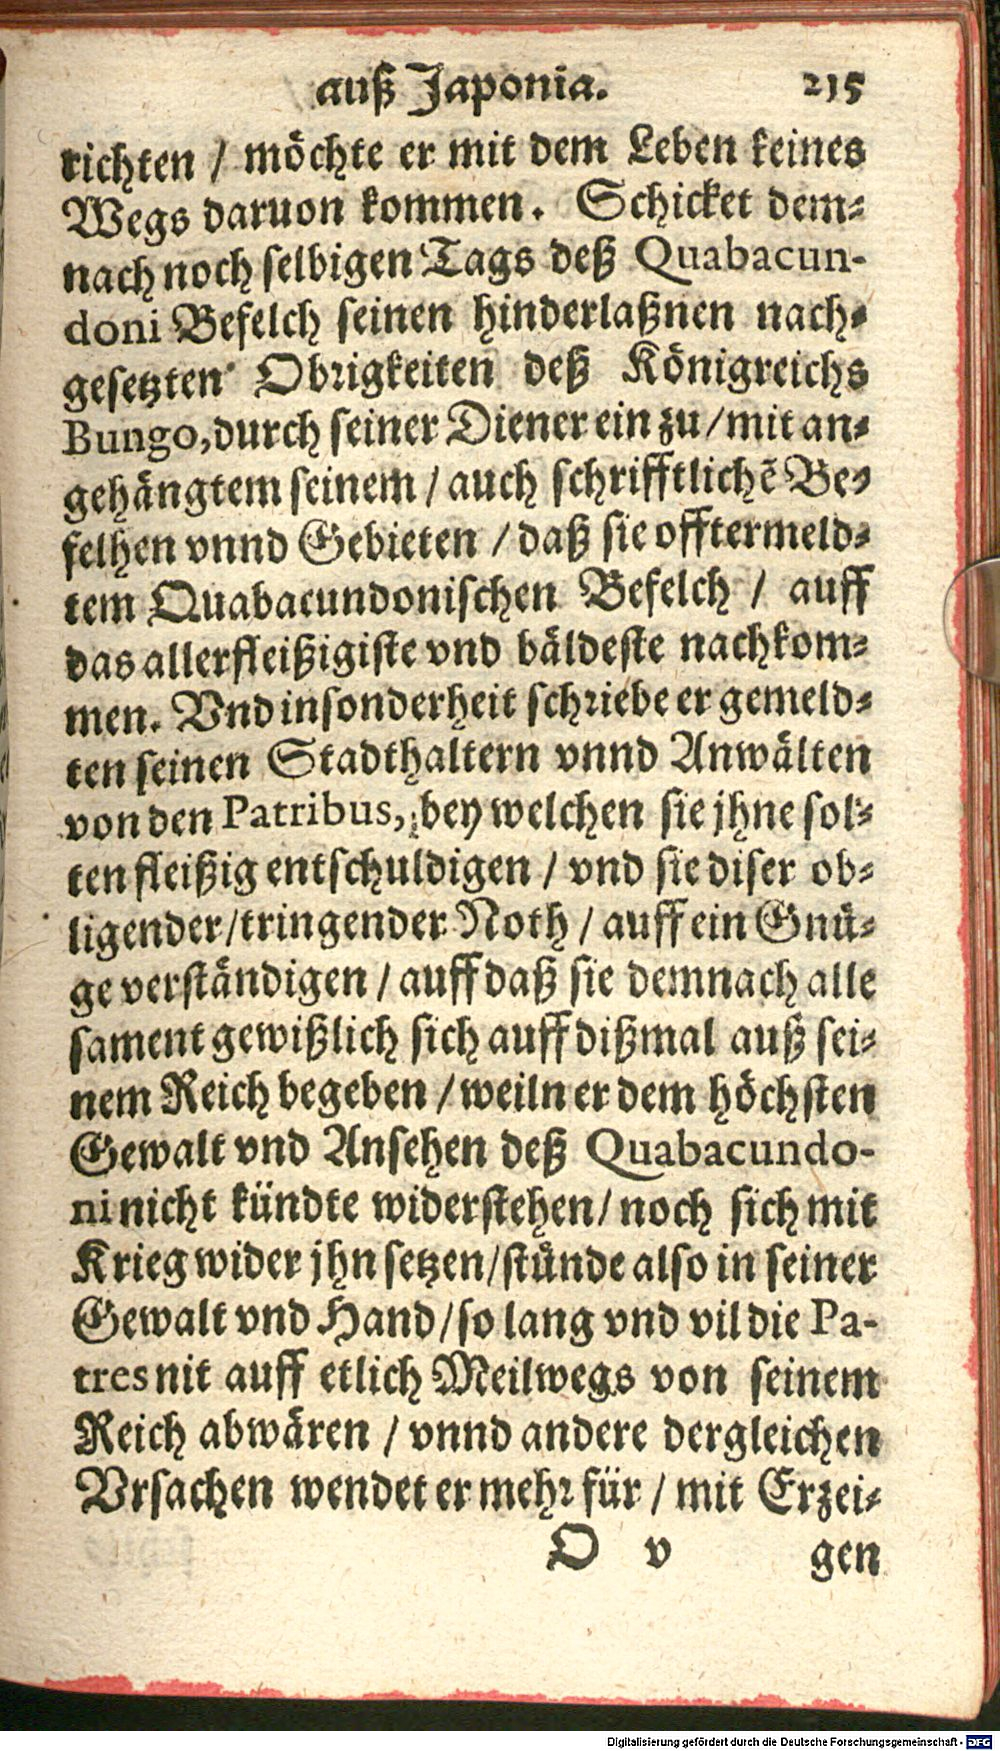 auß Japonia. 215
richten / möchte er mit dem Leben keines
Wegs daruon kommen. Schicket dem-
nach noch selbigen Tags deß Quabacun-
doni Befelch seinen hinderlaßnen nach-
gesetzten Obrigkeiten deß Königreichs
Bungo, durch seiner Diener ein zu / mit an-
gehängtem seinem / auch schrifftlichē Be-
felhen vnnd Gebieten / daß sie offtermeld-
tem Quabacundonischen Befelch / auff
das allerfleißigiste vnd bäldeste nachkom-
men. Vnd insonderheit schriebe er gemeld-
ten seinen Stadthaltern vnnd Anwälten
von den Patribus, bey welchen sie jhne sol-
ten fleißig entschuldigen / vnd sie diser ob-
ligender / tringender Noth / auff ein Gnü-
ge verständigen / auff daß sie demnach alle
sament gewißlich sich auff dißmal auß sei-
nem Reich begeben / weiln er dem höchsten
Gewalt vnd Ansehen deß Quabacundo-
ni nicht kündte widerstehen / noch sich mit
Krieg wider jhn setzen / stünde also in seiner
Gewalt vnd Hand / so lang vnd vil die Pa-
tres nit auff etlich Meilwegs von seinem
Reich abwären / vnnd andere dergleichen
Vrsachen wendet er mehr für / mit Erzei-
O v gen
Digitalisierung gefördert durch die Deutsche Forschungsgemeinschaft - DFG